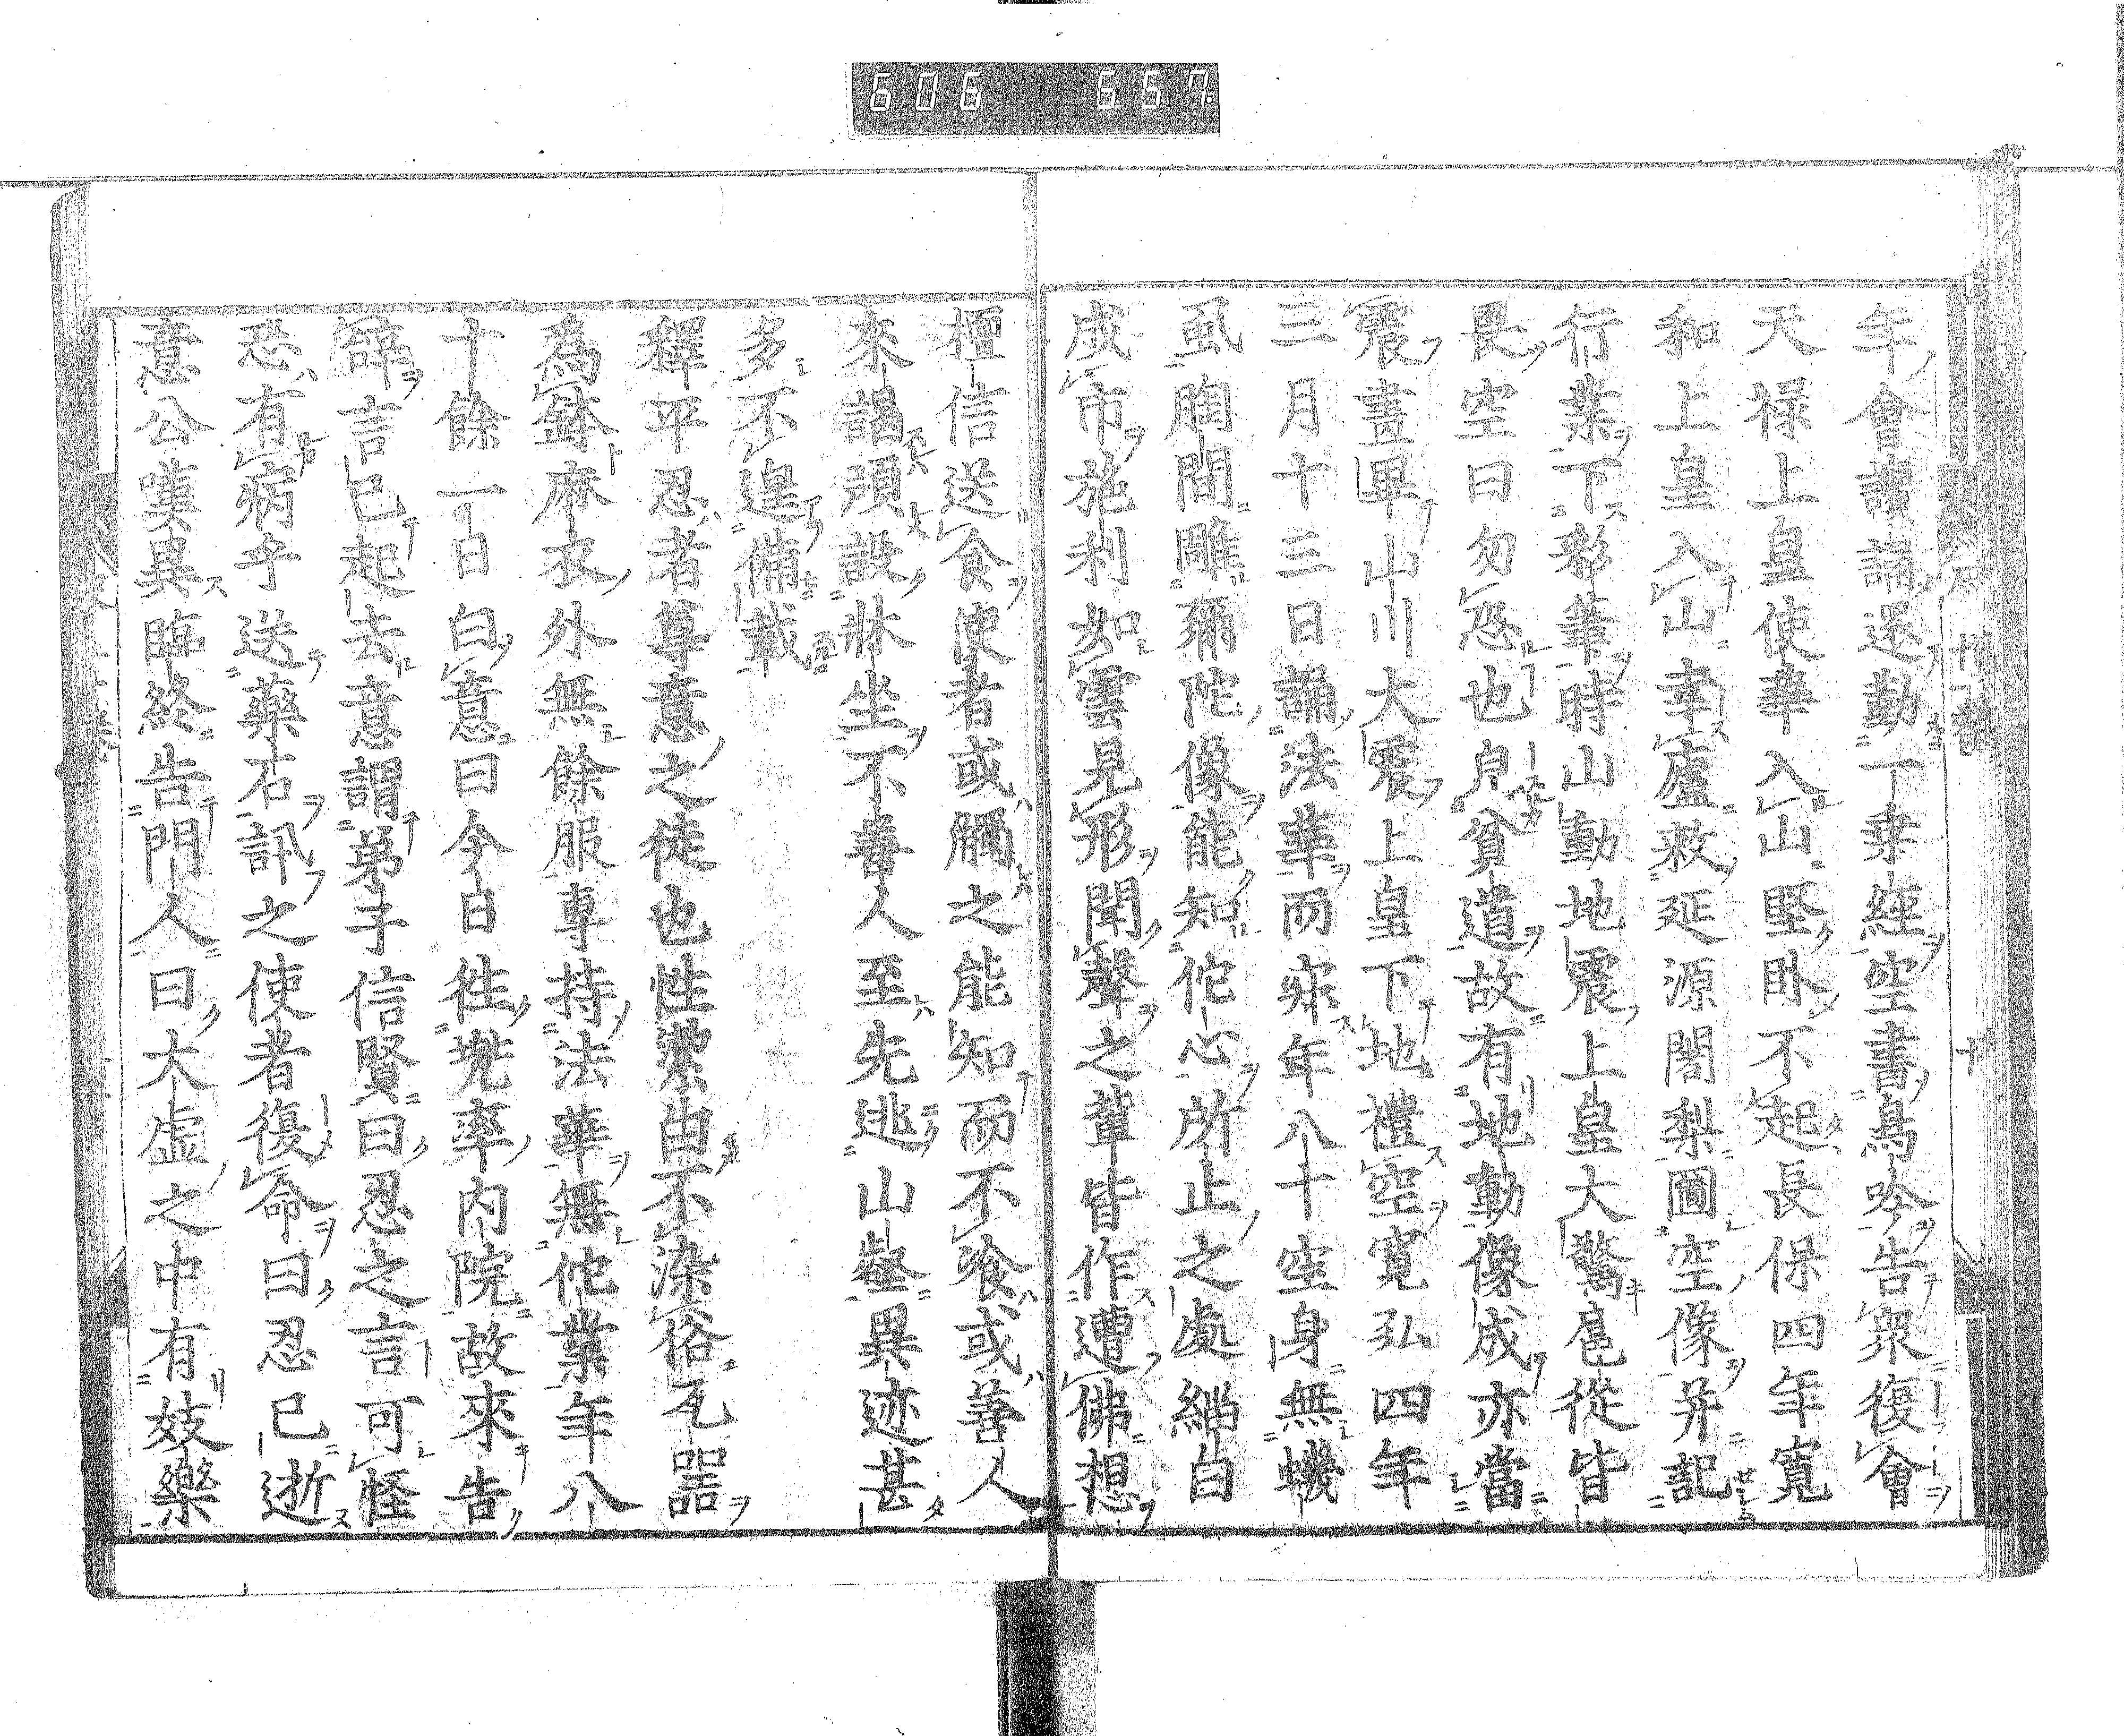 606 657
年會讀誦還勤一乗經空書鳥吟告衆復會
天禄上皇使華入山堅卧不起長保四年寛
和上皇入山幸廬敕延源闍梨圖空像并記
行業下彩筆時山動地震上皇大驚扈從皆
畏空曰勿恐也皃貧道故有地動像成亦當
震畫畢山川大震上皇下地禮空寛弘四年
三月十三日誦法華而寂年八十空身無蟣
虱胸間雕彌陀像能知佗心所止之處緇白
成市施利如雲見形聞聲之輩皆作遭佛想
檀信送食使者或觸之能知而不飡或善人
來謁頒設牀坐不善人至先逃山壑異迹甚
多不遑備載
釋平忍者尊意之徒也性潔白不染俗瓦器
為鉢麻衣外無餘服專持法華無佗業年八
十餘一日白意曰今日徃兜率内院故來告
辭言已起去意謂弟子信賢曰忍之言可怪
恐有病乎送藥石訊之使者復命曰忍已逝
意公嘆異臨終告門人曰大虚之中有妓樂